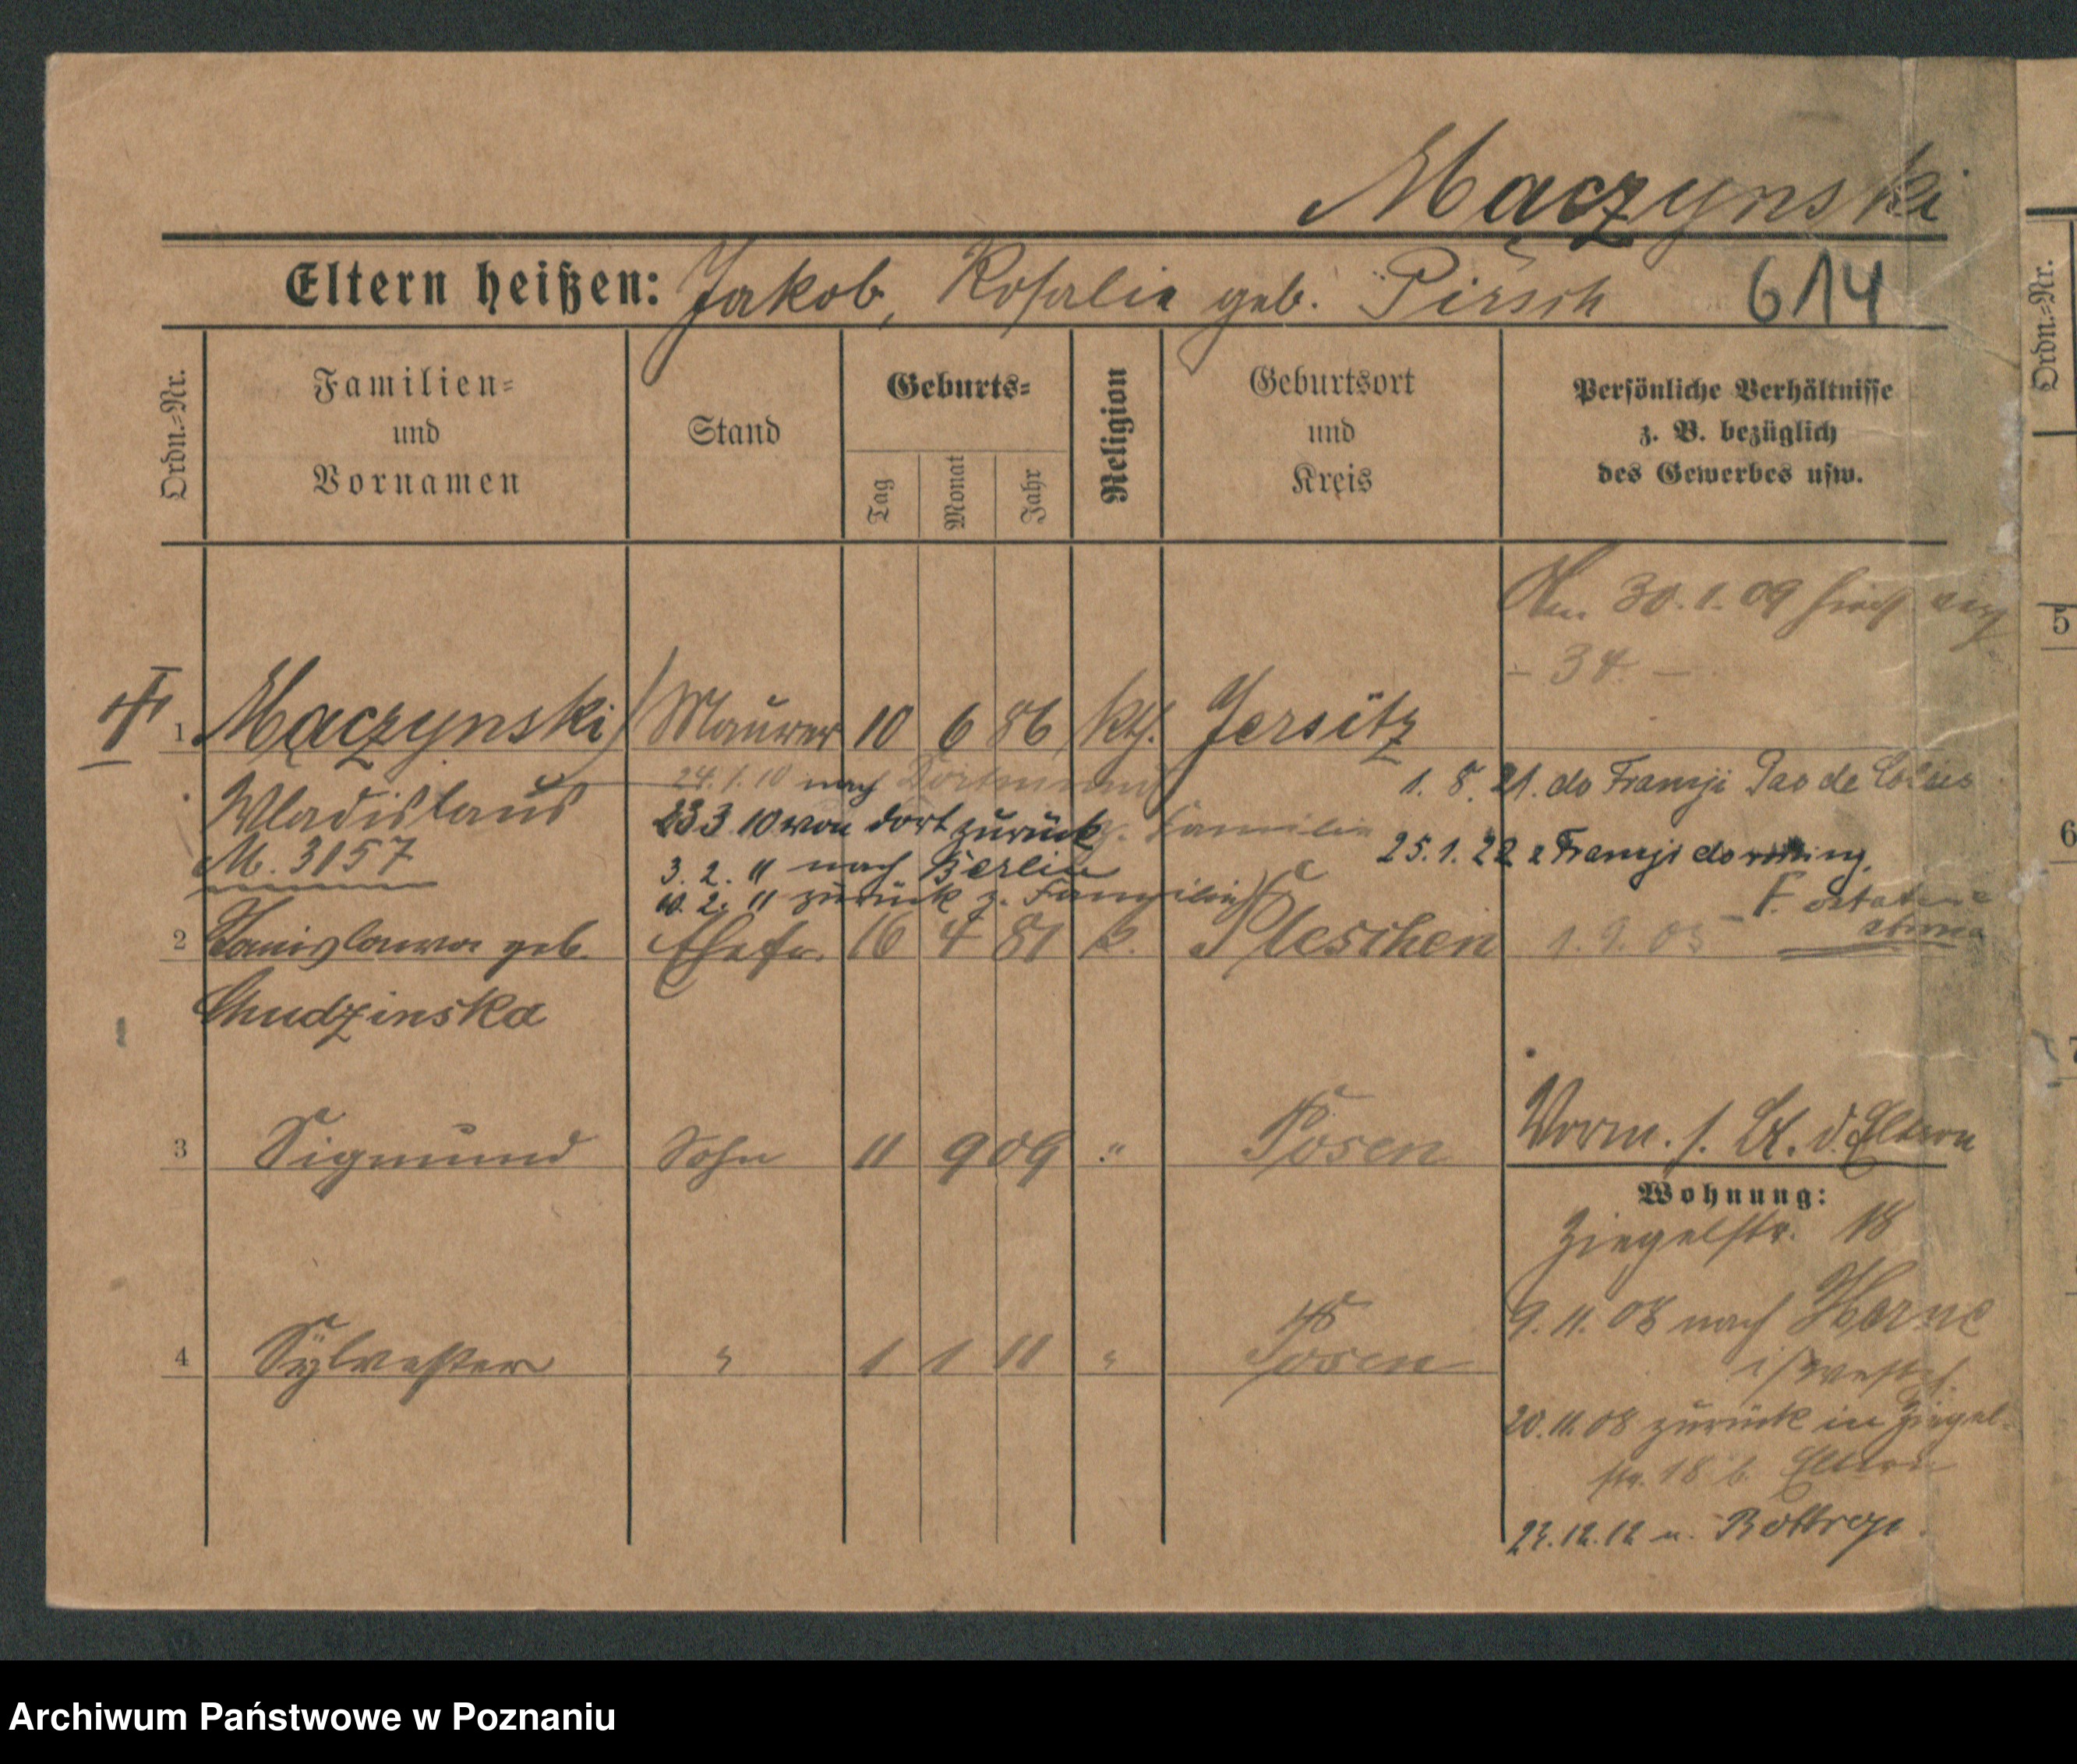 Mączynski
Eltern heißen: Jakob, Rosalie geb. Pirsch 614
Ordn.=Nr.
Familien=
und
Vornamen
Stand
Geburts=
Tag
Monat
Jahr
Religion
Geburtsort
und
Kreis
Persönliche Verhältnisse
z. B. bezüglich
des Gewerbes usw.
30.1.09
- 34. -
1 Mączynski Maurer 10 6 86 kth. Jersitz
Wladislaus
M. 3157
24.1.10 nach Dortmund
23 3 10 von dort zurück z. Familie
3. 2. " nach Berlin
10. 2. " zurück z. Familie
1. 8. 21. do Francji Pas de Calais
25.1.22 z Francji do
F. ostatnie
2 Stanislawa geb. Ehefr. 16 4 81 k. Pleschen 1.9.05
Chudzinska
3 Sigmund Sohn 11 9 09 " Posen
Vorm. s. Bl. d. Eltern
Wohnung:
Ziegelstr. 18
9.11.08 nach Herne
i/Westf.
4 Sylvester " 1 1 11 " Posen
20.11.08 zurück in Ziegel-
str. 18 b. Eltern
27.12.12 n. Bottrop.
Ordn.=Nr.
5
6
7
Archiwum Państwowe w Poznaniu